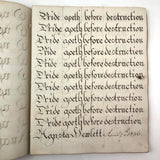 Pride goeth before destruction
Pride goeth before destruction
Pride goeth before destruction
Pride goeth before destruction
Pride goeth before destruction
Pride goeth before destruction
Pride goeth before destruction
Pride goeth before destruction
Hewlett